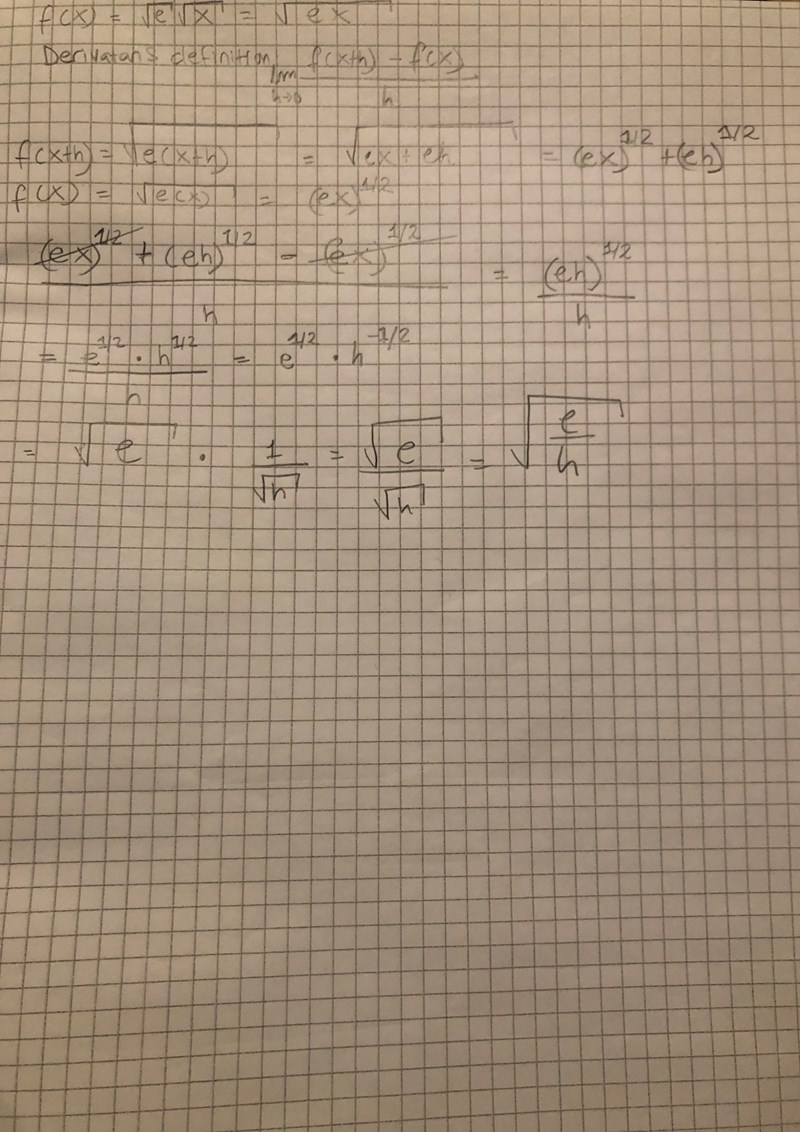 f(x) = √e √x = √ex
Derivatans definition lim h→0 f(x+h) - f(x) / h
f(x+h) = √e(x+h) = √ex+eh = (ex)^1/2 + (eh)^1/2
f(x) = √e(x) = (ex)^1/2
(ex)^1/2 + (eh)^1/2 - (ex)^1/2 / h = (eh)^1/2 / h
= e^1/2 · h^1/2 / h = e^1/2 · h^-1/2
= √e · 1/√h = √e/√h = √e/h